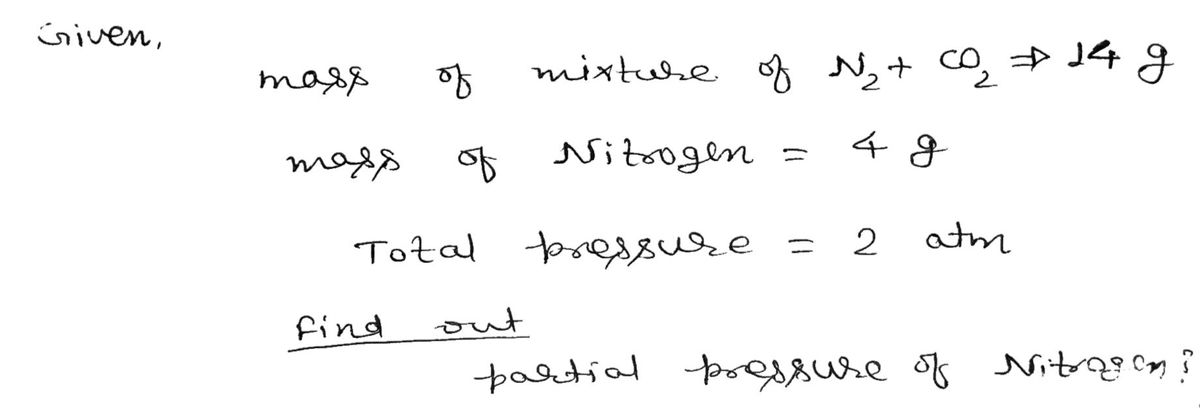 Given,
mass of mixture of N₂ + CO₂ ⇒ 14 g
mass of Nitrogen = 4 g
Total pressure = 2 atm
find out
partial pressure of Nitrogen?